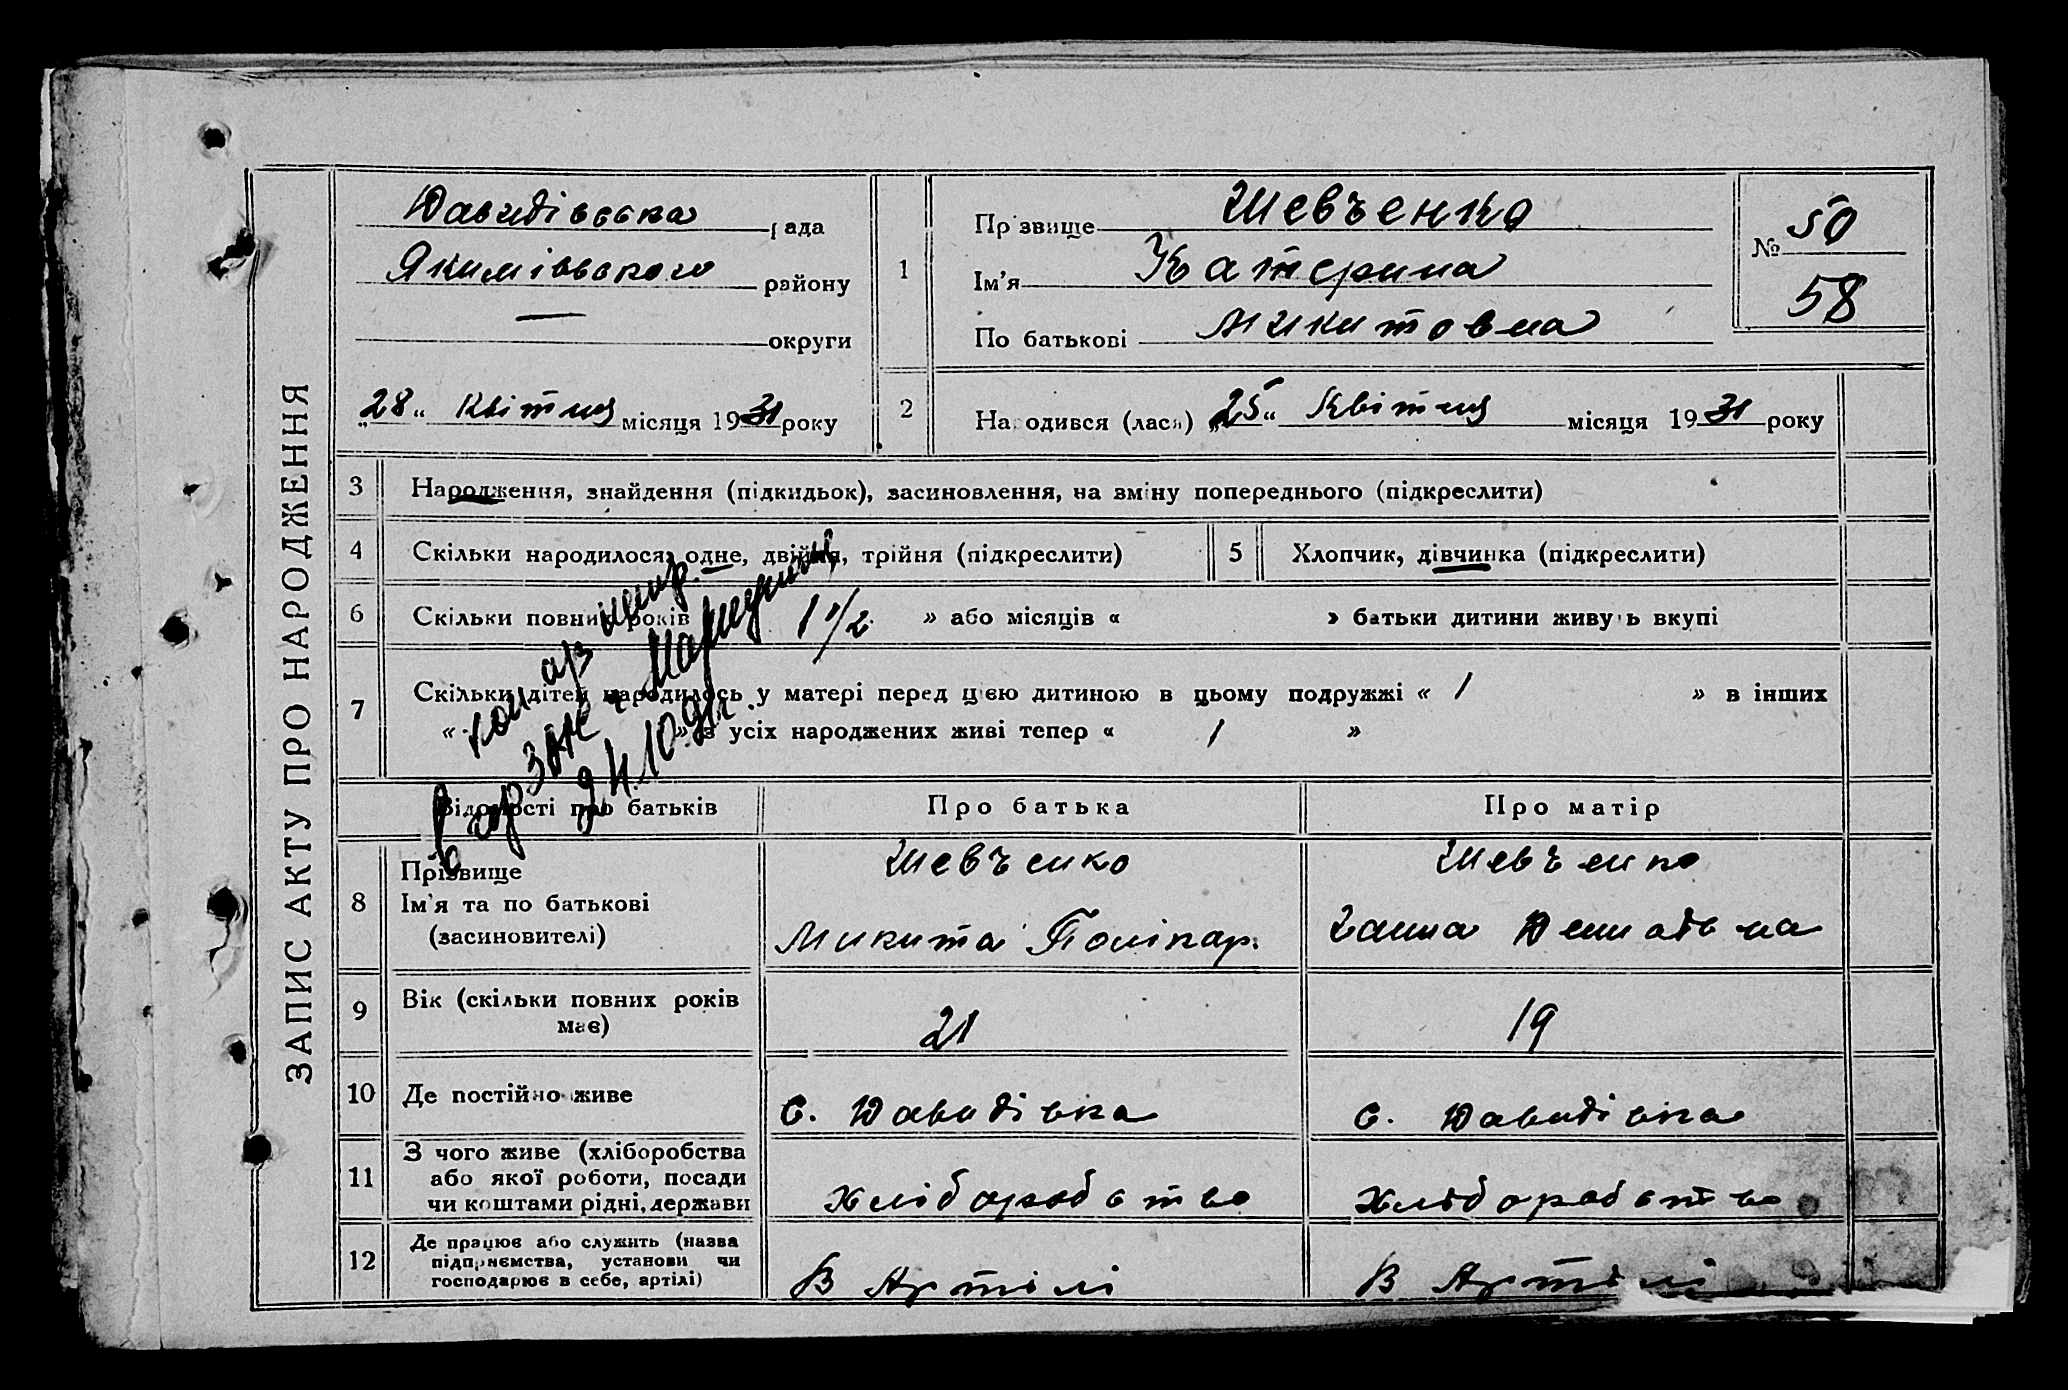 ЗАПИС АКТУ ПРО НАРОДЖЕННЯ
Давидівська рада
Якимівського району
— округи
„28“ Квітня місяця 1931 року
1
Прізвище Шевъченко
Ім'я Катерина
По батькові Микитовна
№ 50
58
2
Народився (лася) „25“ Квітня місяця 1931 року
3 Народження, знайдення (підкидьок), засиновлення, на зміну попереднього (підкреслити)
4 Скільки народилося: одне, двійня, трійня (підкреслити)
5 Хлопчик, дівчинка (підкреслити)
6 Скільки повних років 1 1/2 » або місяців « » батьки дитини живуть вкупі
7 Скільки дітей народилось у матері перед цією дитиною в цьому подружжі « 1 » в інших
« » з усіх народжених живі тепер « 1 »
24.10.91г.
Відомості про батьків
Про батька
Про матір
8 Прізвище
Ім'я та по батькові
(засиновителі)
Шевъченко
Микита Полікар.
Шевъченко
Ганна
9 Вік (скільки повних років
має)
21
19
10 Де постійно живе
С. Давидівка
С. Давидівка
11 З чого живе (хліборобства
або якої роботи, посади
чи коштами рідні, держави
хліборобство
хліборобство
12 Де працює або служить (назва
підприємства, установи чи
господарює в себе, артілі)
В Артілі
В Артілі